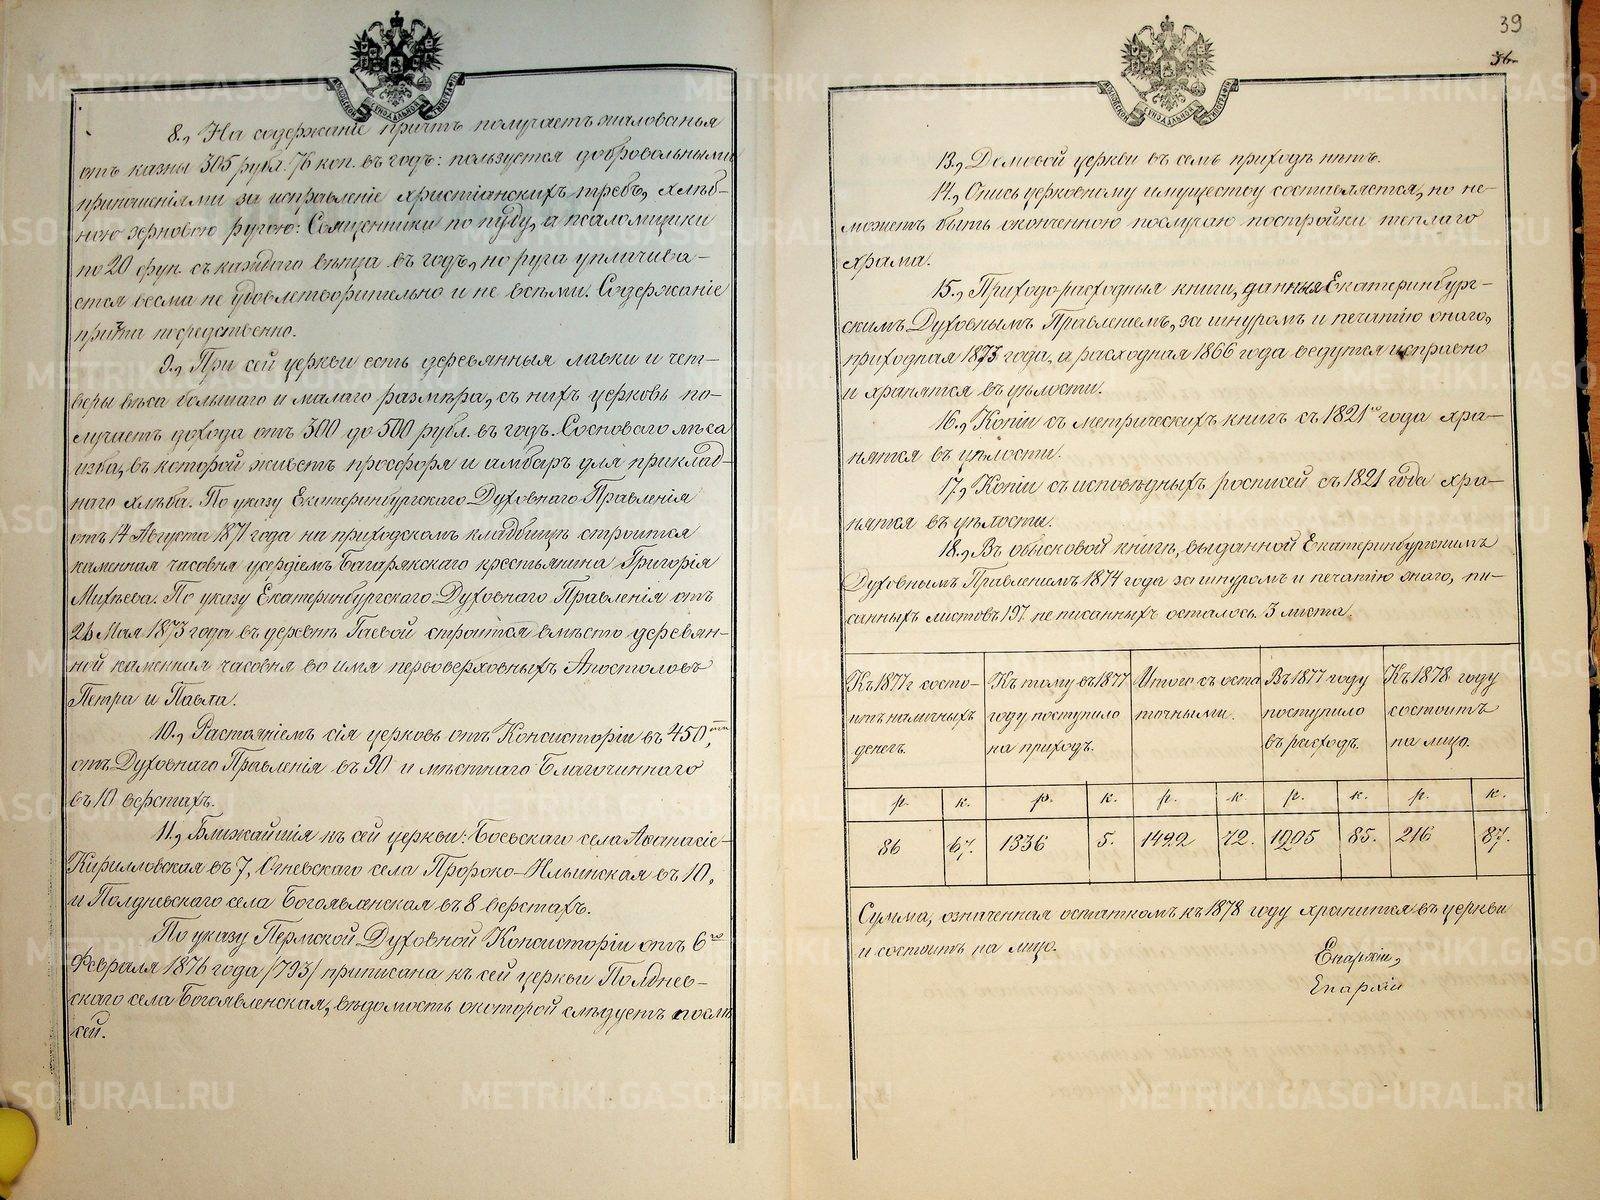 8., На содержаніе причтъ получаетъ жалованья
отъ казны 305 рубл. 76 коп. въ годъ: пользуется добровольными
приношеніями за исправленіе христіанскихъ требъ, хлѣб-
ною зерновою ругою: Священники по пуду, а псаломщики
по 20 фун. съ каждаго вѣнца въ годъ, но руга уплачива-
ется весма не удовлетворительно и не всѣми. Содержаніе
причта посредственно.
9., При сей церкви есть деревянныя лавки и чет-
веры вѣса большаго и малаго размѣра, съ нихъ церковь по-
лучаетъ дохода отъ 300 до 500 рубл. въ годъ. Сосноваго лѣса
изба, въ которой живетъ просфорня и амбаръ для приклад-
наго хлѣба. По указу Екатеринбургскаго Духовнаго Правленія
отъ 14 Августа 1871 года на приходскомъ кладбищѣ строится
каменная часовня усердіемъ Багарякскаго крестьянина Григорія
Михѣева. По указу Екатеринбургскаго Духовнаго Правленія отъ
Мая 1873 года въ деревнѣ Гаевой строится вмѣсто деревян-
ной каменная часовня во имя первоверховныхъ Апостоловъ
Петра и Павла.
10., Растояніемъ сія церковь отъ Консисторіи въ 450,
отъ Духовнаго Правленія въ 90 и мѣстнаго Благочиннаго
въ 10 верстахъ.
11., Ближайшія къ сей церкви: Боевскаго села Аѳанасіе-
Кирилловская въ 7, Огневскаго села Пророко-Ильинская въ 10,
и Полдневскаго села Богоявленская въ 8 верстахъ.
По указу Пермской Духовной Консисторіи отъ 6го
Февраля 1876 года /793/ приписана къ сей церкви Полднев-
скаго села Богоявленская, вѣдомость о которой слѣдуетъ послѣ
сей.
39
36
13., Домовой церкви въ семъ приходѣ нѣтъ.
14., Опись церковному имуществу составляется, но не-
можетъ быть оконченною по случаю постройки теплаго
храма.
15., Приходо-расходныя книги, данныя Екатеринбург-
скимъ Духовнымъ Правленіемъ, за шнуромъ и печатію онаго,
приходная 1873 года, а расходная 1866 года ведутся исправно
и хранятся въ цѣлости.
16., Копіи съ метрическихъ книгъ съ 1821го года хра-
нятся въ цѣлости.
17., Копіи съ исповѣдныхъ росписей съ 1821 года хра-
нятся въ цѣлости.
18., Въ обысковой книгѣ, выданной Екатеринбургскимъ
Духовнымъ Правленіемъ 1874 года за шнуромъ и печатію онаго, пи-
санныхъ листовъ 197 не писанныхъ осталось 3 листа.
Къ 1877 г состо- Къ тому въ 1877 Итого съ оста Въ 1877 году Къ 1878 году
итъ наличныхъ году поступило точными. поступило состоитъ
денегъ. на приходъ. въ расходъ. на лицо.
р. к. р. к. р. к. р. к. р. к.
86 67. 1336 5. 1422 72. 1205 85. 216 87.
Сумма, означенная остаткомъ къ 1878 году хранится въ церкви
и состоитъ на лицо.
Епархіи,
Епархіи
METRIKI.GASO-URAL.RU